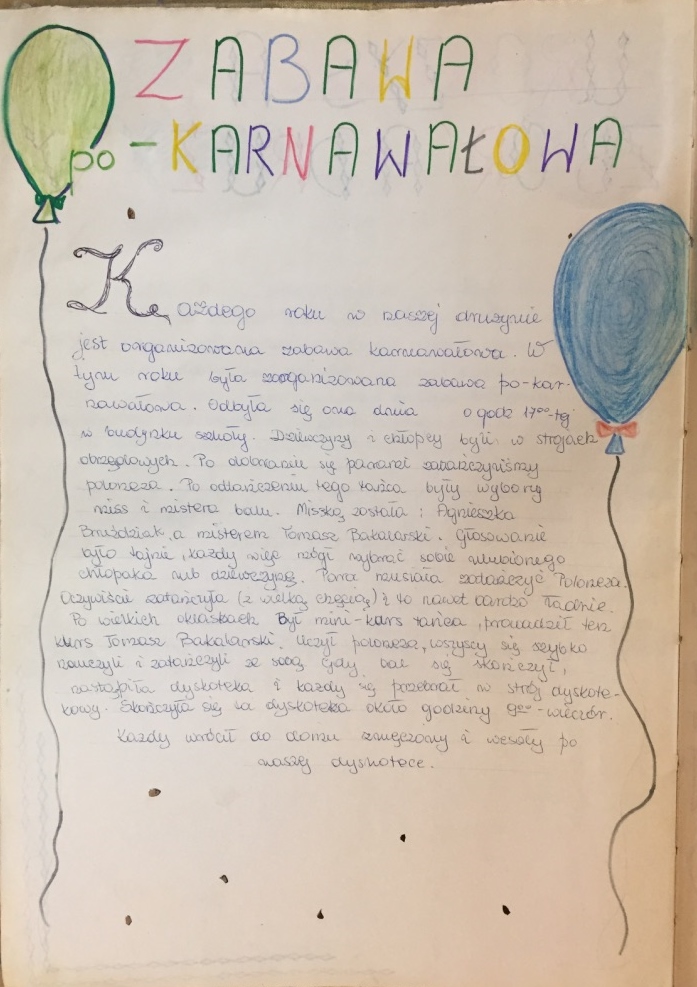 ZABAWA
po-KARNAWAŁOWA
Każdego roku w naszej drużynie
jest organizowana zabawa karnawałowa. W
tym roku była zorganizowana zabawa po-kar-
nawałowa. Odbyła się ona dnia o godz 17⁰⁰-tej
w budynku szkoły. Dziewczyny i chłopcy byli w strojach
obrzędowych. Po dobraniu się parami zatańczyliśmy
poloneza. Po odtańczeniu tego tańca były wybory
miss i mistera balu. Misską została : Agnieszka
Bruździak, a misterem Tomasz Bakalarski. Głosowanie
było tajne, każdy więc mógł wybrać sobie ulubionego
chłopaka lub dziewczynę. Para musiała zatańczyć Poloneza.
Oczywiście zatańczyła (z wielką chęcią) i to nawet bardzo ładnie.
Po wielkich oklaskach Był mini-kurs tańca, prowadził ten
kurs Tomasz Bakalarski. Uczył poloneza, wszyscy się szybko
nauczyli i zatańczyli ze sobą. Gdy bal się skończył,
nastąpiła dyskoteka i każdy się przebrał w strój dyskote-
kowy. Skończyła się ta dyskoteka około godziny 9⁰⁰-wieczór.
Każdy wrócił do domu zmęczony i wesoły po
naszej dyskotece.